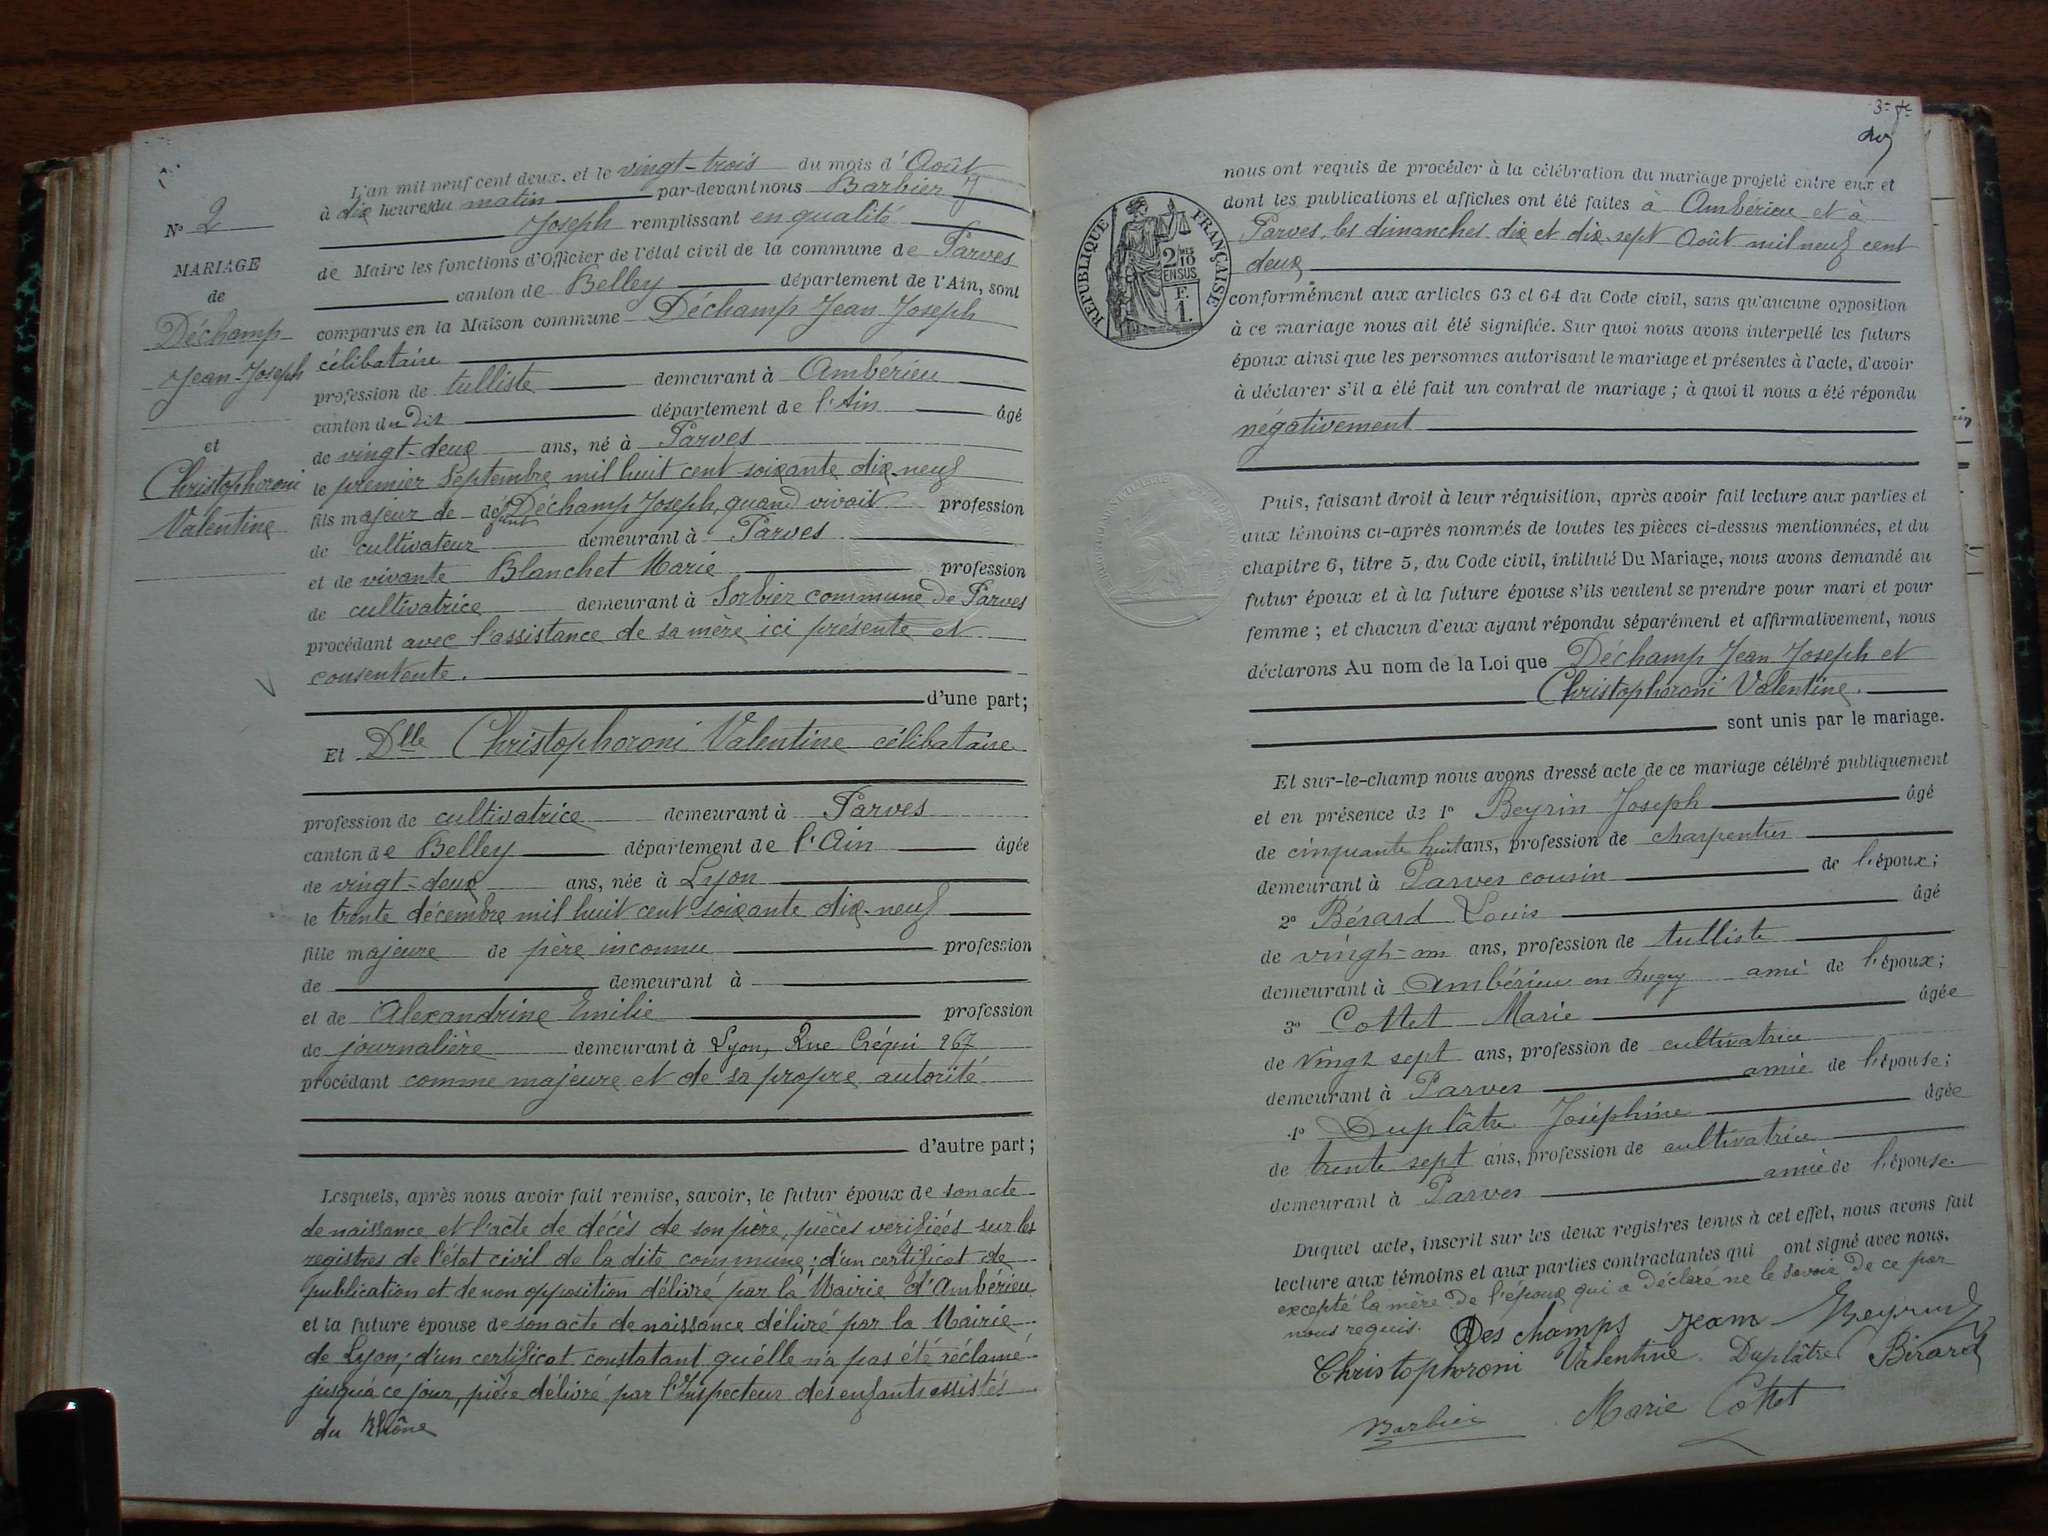 L'an mil neuf cent deux, et le vingt-trois du mois d'Août
à dix heures du matin par-devant nous Barbier
Joseph remplissant en qualité
de Maire les fonctions d'Officier de l'état civil de la commune de Parves
canton de Belley département de l'Ain, sont
comparus en la Maison commune Déchamp Jean Joseph
célibataire
profession de tulliste demeurant à Ambérieu
canton du dit département de l'Ain âgé
de vingt-deux ans, né à Parves
le premier Septembre mil huit cent soixante dix-neuf
fils majeur de défunt Déchamp Joseph, quand vivait profession
de cultivateur demeurant à Parves
et de vivante Blanchet Marie profession
de cultivatrice demeurant à Sorbier commune de Parves
procédant avec l'assistance de sa mère ici présente et
consentente.
d'une part;
Et Dlle Christophoroni Valentine célibataire
profession de cultivatrice demeurant à Parves
canton de Belley département de l'Ain âgée
de vingt-deux ans, née à Lyon
le trente décembre mil huit cent soixante dix-neuf
fille majeure de père inconnu profession
de demeurant à
et de Alexandrine Emilie profession
de journalière demeurant à Lyon, Rue Créqui 267
procédant comme majeure et de sa propre autorité
d'autre part;
Lesquels, après nous avoir fait remise, savoir, le futur époux de son acte
de naissance et l'acte de décès de son père, pièces verifiées sur les
registres de l'état civil de la dite commune; d'un certificat de
publication et de non opposition délivré par la Mairie d'Ambérieu
et la future épouse de son acte de naissance délivré par la Mairie
de Lyon; d'un certificat constatant qu'elle n'a pas été réclamé
jusqu'à ce jour, pièce délivré par l'Inspecteur des enfants assistés
du Rhône
No 2
MARIAGE
de
Déchamp
Jean-Joseph
et
Christophoroni
Valentine
3e fe
nous ont requis de procéder à la célébration du mariage projeté entre eux et
dont les publications et affiches ont été faites à Ambérieu et à
Parves, les dimanches dix et dix-sept Août mil neuf cent
deux
conformément aux articles 63 et 64 du Code civil, sans qu'aucune opposition
à ce mariage nous ait été signifiée. Sur quoi nous avons interpellé les futurs
époux ainsi que les personnes autorisant le mariage et présentes à l'acte, d'avoir
à déclarer s'il a été fait un contrat de mariage; à quoi il nous a été répondu
négativement
Puis, faisant droit à leur réquisition, après avoir fait lecture aux parties et
aux témoins ci-après nommés de toutes les pièces ci-dessus mentionnées, et du
chapitre 6, titre 5, du Code civil, intitulé Du Mariage, nous avons demandé au
futur époux et à la future épouse s'ils veulent se prendre pour mari et pour
femme; et chacun d'eux ayant répondu séparément et affirmativement, nous
déclarons Au nom de la Loi que Déchamp Jean Joseph et
Christophoroni Valentine.
sont unis par le mariage.
Et sur-le-champ nous avons dressé acte de ce mariage célébré publiquement
et en présence de 1o Beyrin Joseph âgé
de cinquante huit ans, profession de charpentier
demeurant à Parves cousin de l'époux;
2o Bérard Louis âgé
de vingt-un ans, profession de tulliste
demeurant à Ambérieu en Bugey ami de l'époux;
3o Cottet Marie âgée
de vingt sept ans, profession de cultivatrice
demeurant à Parves amie de l'épouse;
4o Duplâtre Joséphine âgée
de trente sept ans, profession de cultivatrice
demeurant à Parves amie de l'épouse.
Duquel acte, inscrit sur les deux registres tenus à cet effet, nous avons fait
lecture aux témoins et aux parties contractantes qui ont signé avec nous.
excepté la mère de l'époux qui a déclaré ne le savoir de ce par
nous requis.
Des champs Jean Beyrin
Christophoroni Valentine Duplâtre Bérard
Barbier Marie Cottet
RÉPUBLIQUE FRANÇAISE
2/10
EN SUS
F.
1.